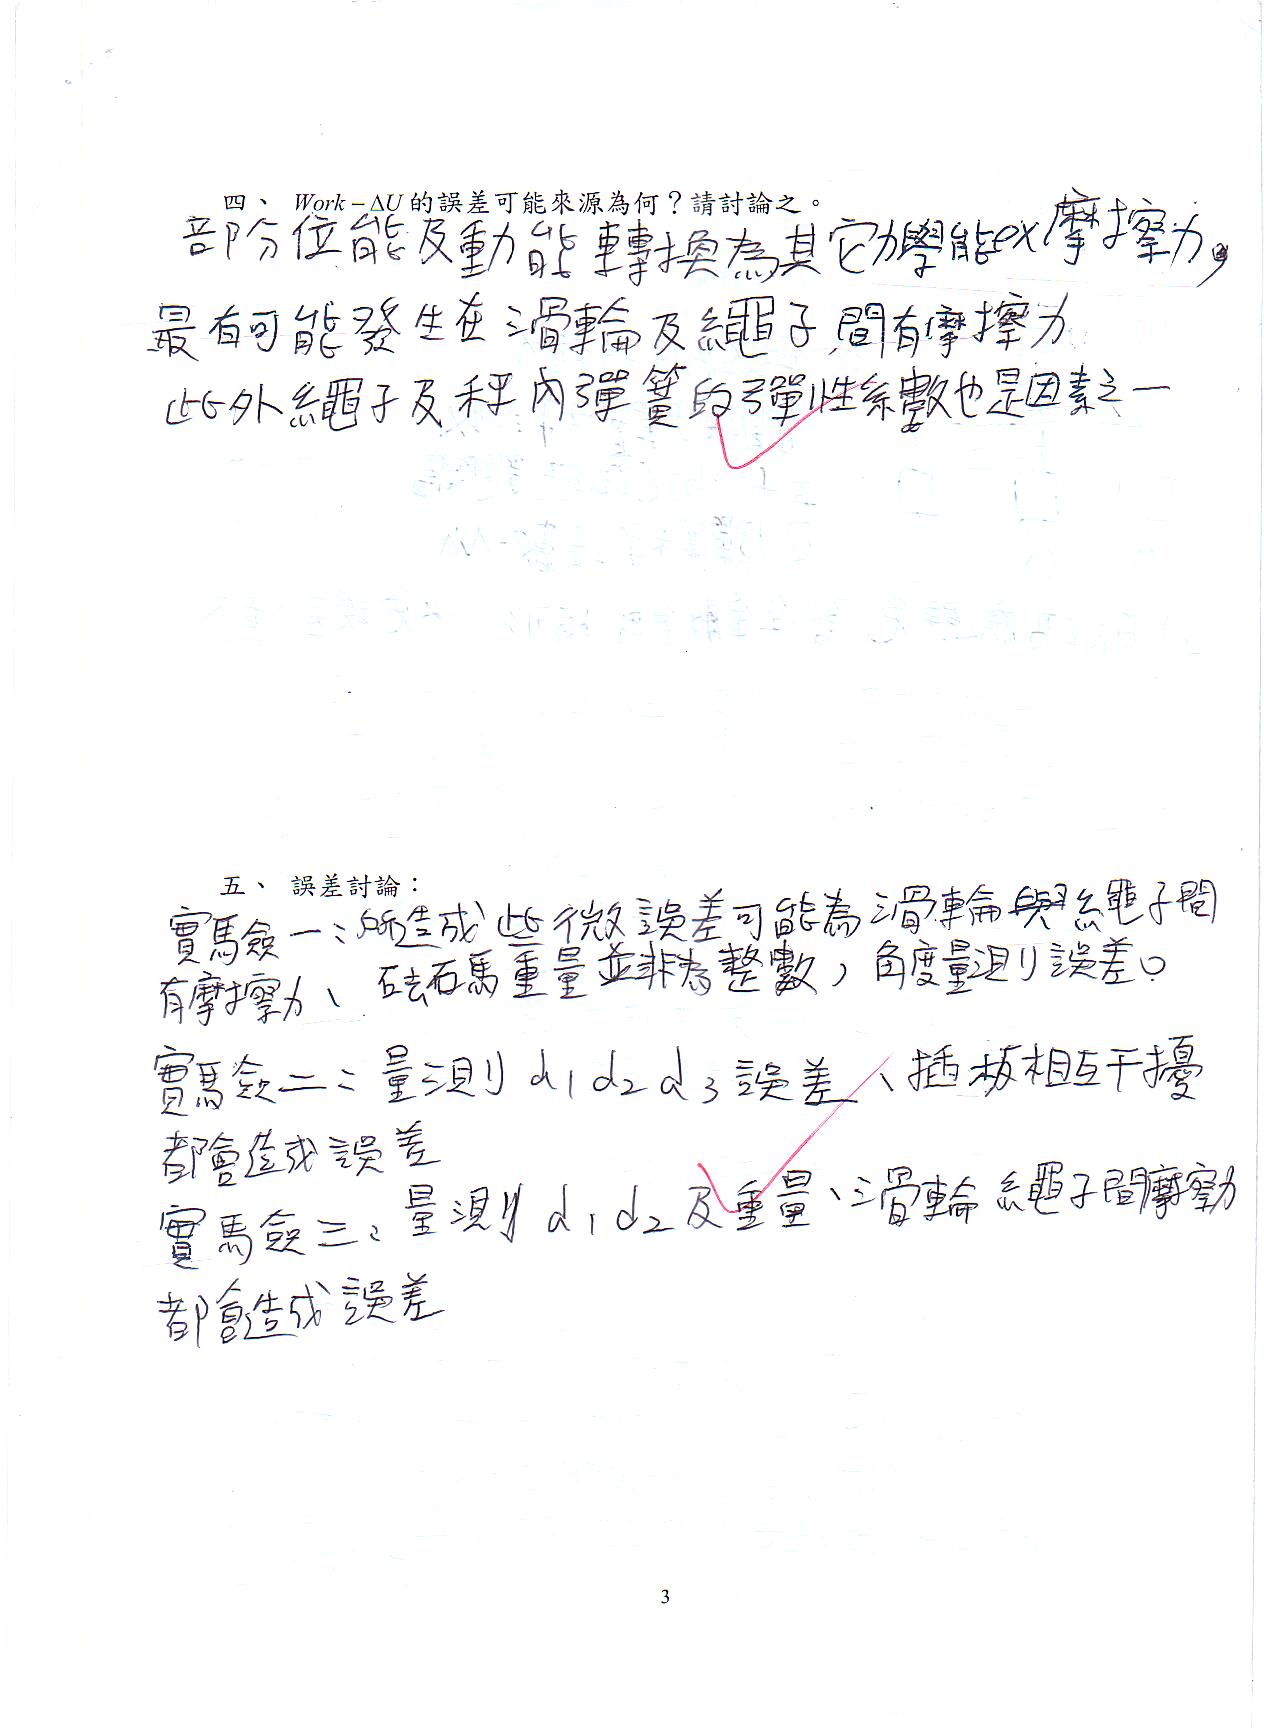 四、 Work – ΔU 的誤差可能來源為何？請討論之。
部分位能及動能轉換為其它力學能ex摩擦力，
最有可能發生在滑輪及繩子間有摩擦力
此外繩子及秤內彈簧的彈性系數也是因素之一
五、 誤差討論：
實驗一：所造成些微誤差可能為滑輪與繩子間
有摩擦力、砝碼重量並非為整數，角度量測誤差。
實驗二：量測d1d2d3誤差、插板相互干擾
都會造成誤差
實驗三：量測d1d2及重量、滑輪繩子間摩擦力
都會造成誤差
3